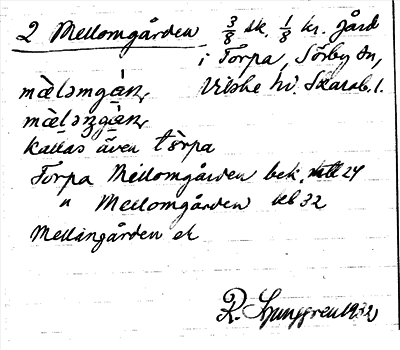 2 Mellomgården 3/8 sk. 1/8 kr. jord
i Torpa, Sörby sn,
Vilske hd. Skarab. l.
mὰləmgάɳ
mὰləŋgάɳ
kallas även tòrpa
Torpa Mellomgården bek. 24
" Mellomgården 32
Mellangården ek
R. Ljunggren 1932